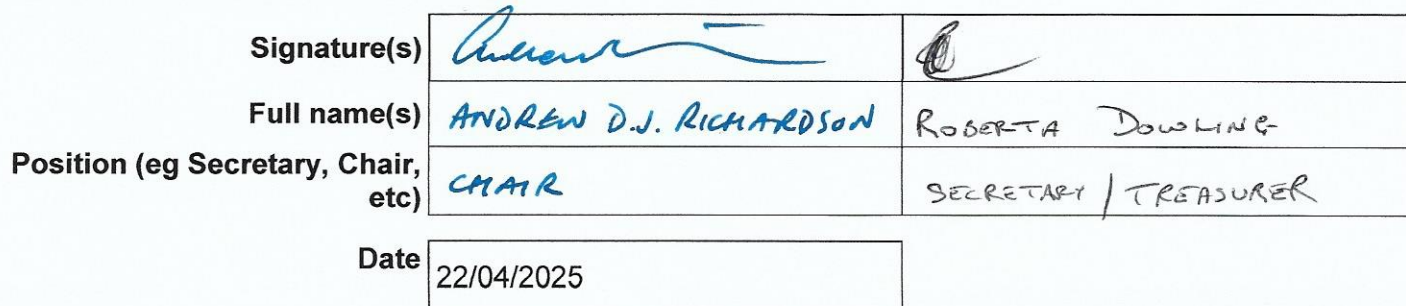 Signature(s)
Full name(s) ANDREW D.J. RICHARDSON ROBERTA DOWLING
Position (eg Secretary, Chair,
etc) CHAIR SECRETARY / TREASURER
Date 22/04/2025